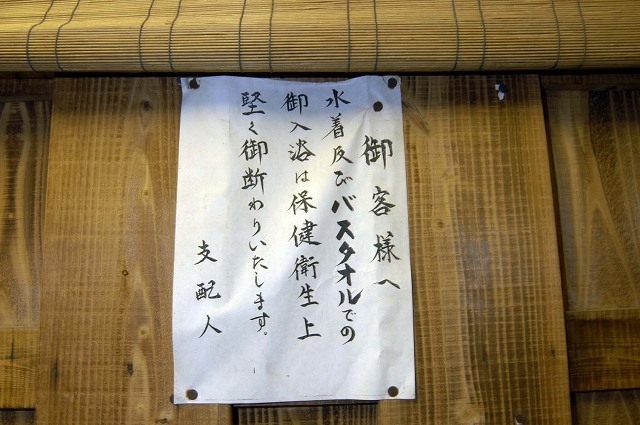 御客様へ
水着及びバスタオルでの
御入浴は保健衛生上
堅く御断わりいたします。
支配人